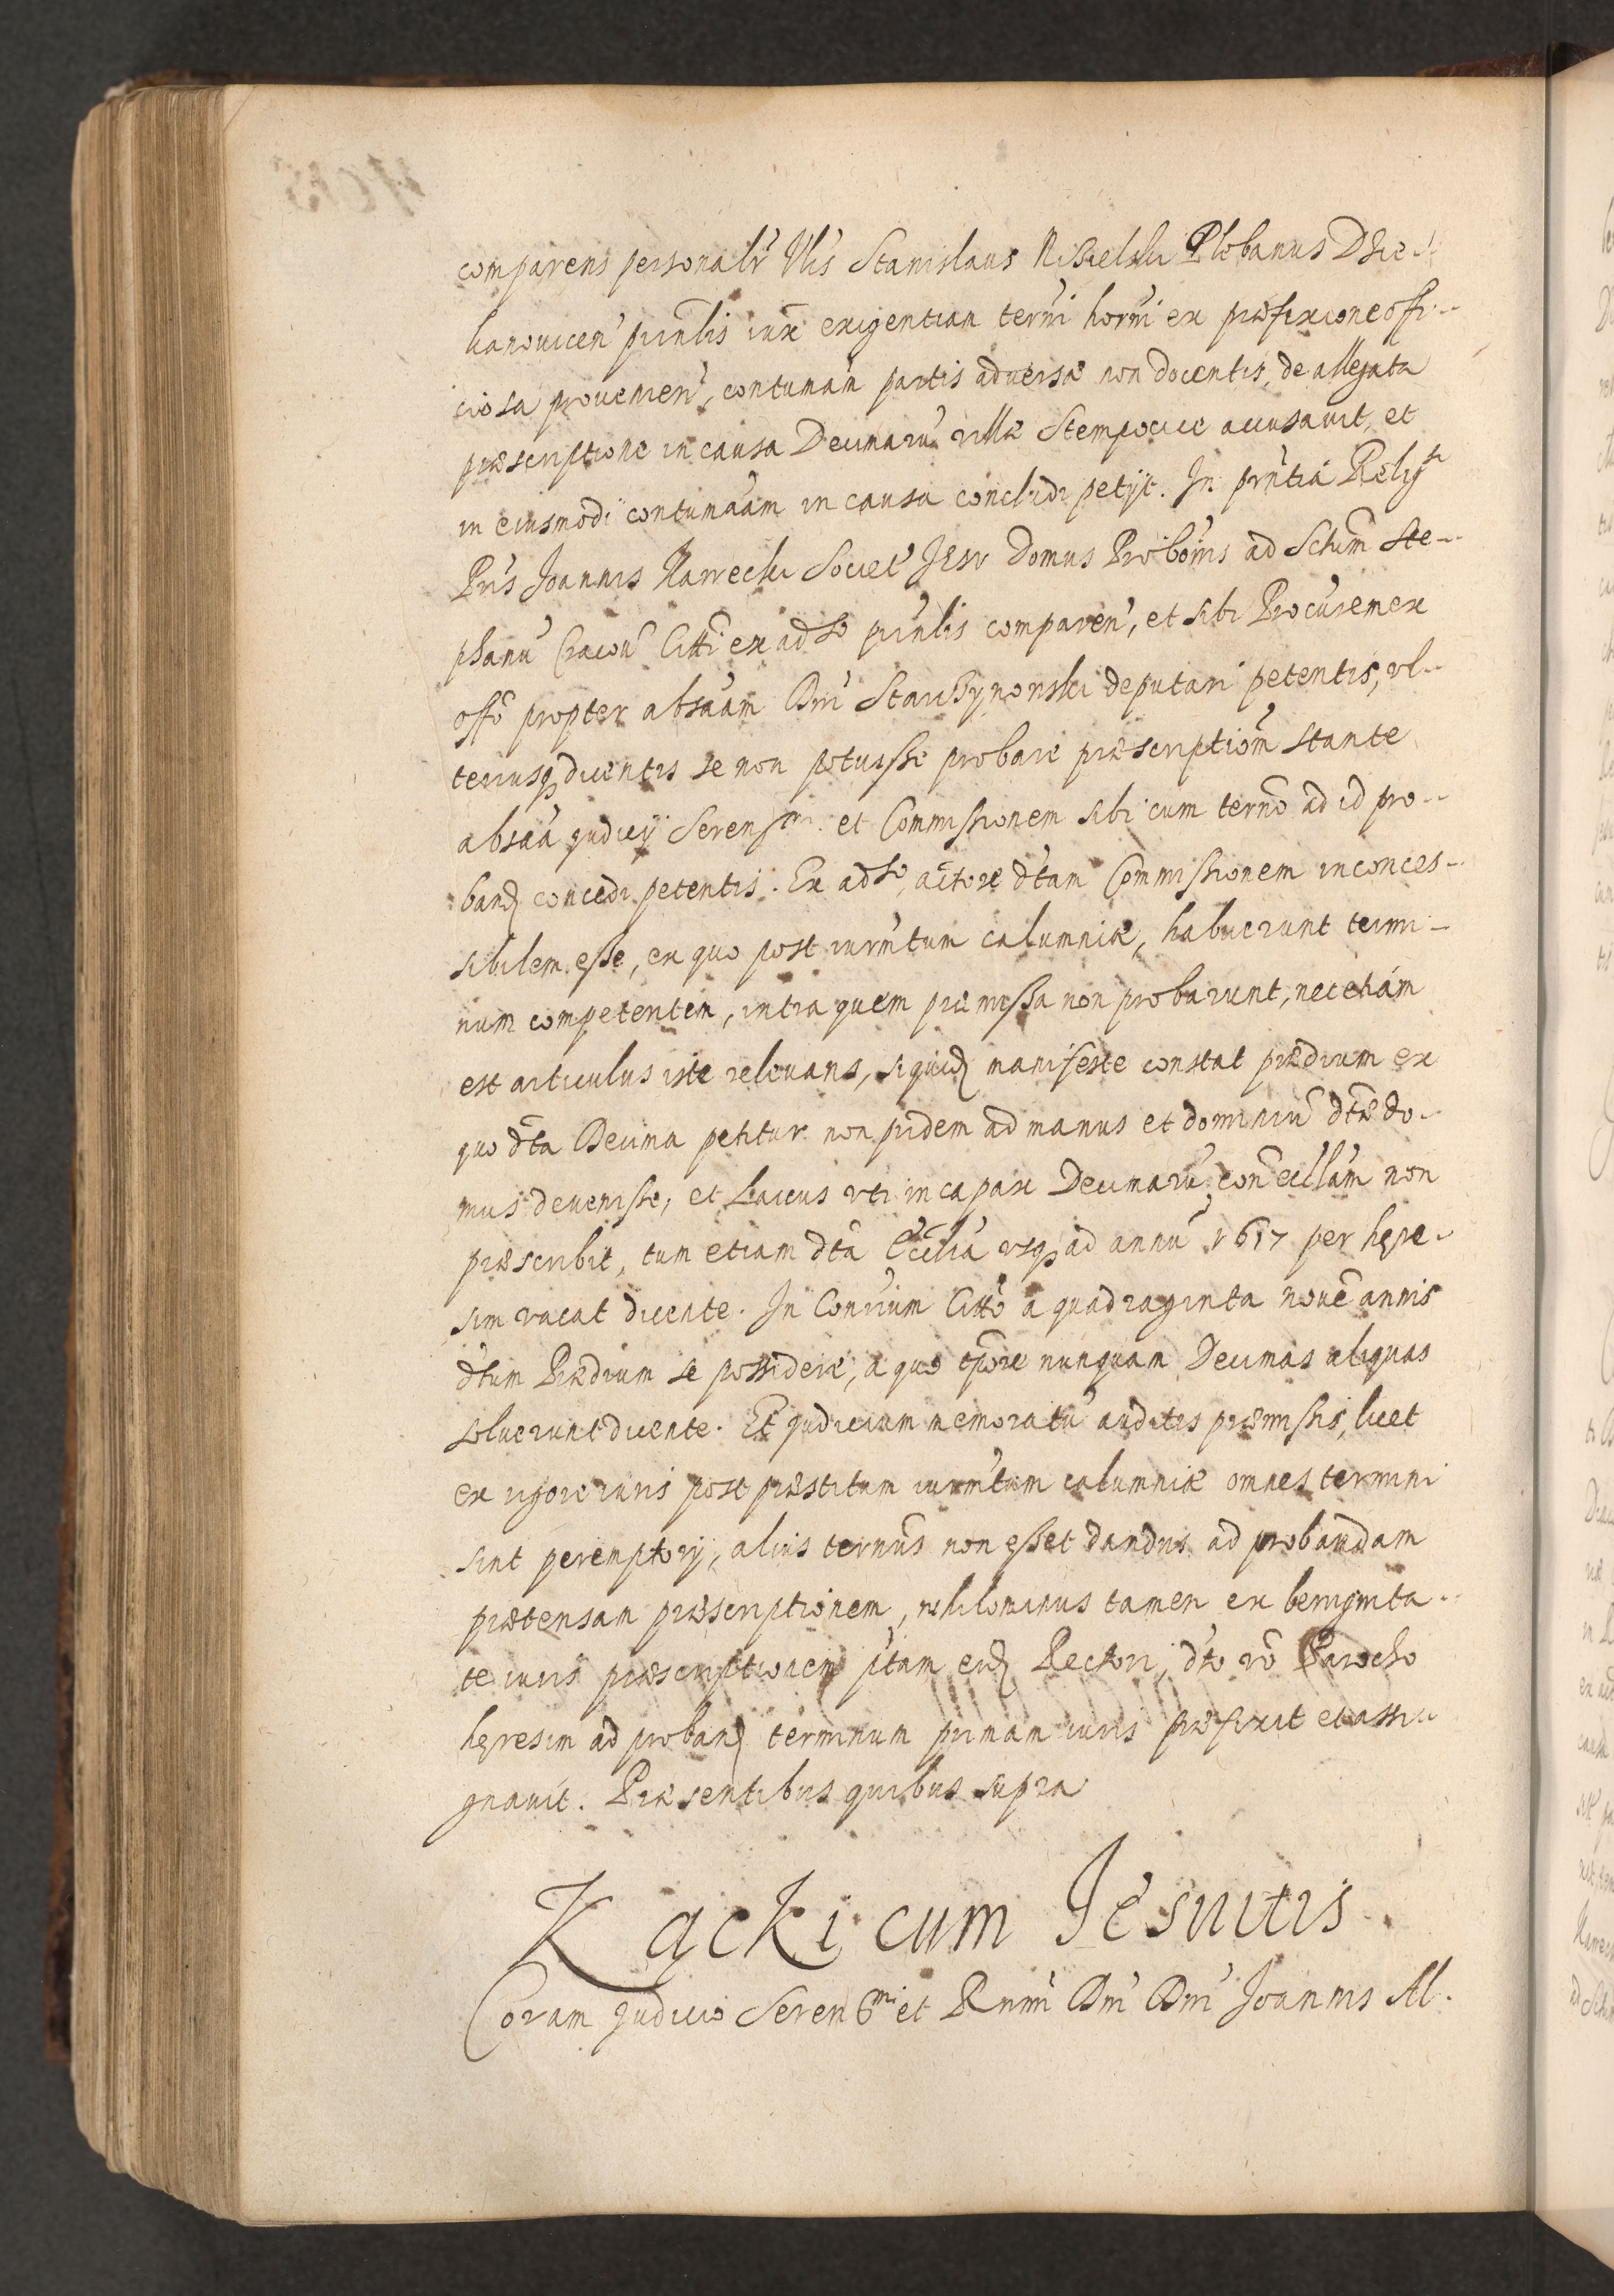 comparens personalr̃ Vlis Stanislaus Plebanus Dzie-
kanouicen' prñlis iux̃ exigentiam term̃i horn̄i ex præfixione offi-
ciosa prouenien', contumãm partis aduersæ non docentis, de allegata
præscriptione in causa Decimarũ villæ Stempocice accusauit, et
in eiusmodi contumãam in causa concludi petijt. In prñtia Religsi
Pris Joannis Societ' Jesu Domus ad S. Ste-
phanũ Cracoũ Citti ex adso prñlis comparen', et sibi Procurem ex
offo propter absãam Dni deputari petentis, vl-
teriusq dicentis se non potuisse probare præscriptiom̃ stante
absãa judicij Serensmi et Commissionem sibi cum termo ad id pro-
band concedi petentis. Ex adso, actore dtam Commissionem inconces-
sibilem esse, ex quo post iurm̃tum calumniæ, habuerunt termi-
num competentem, intra quem præmissa non probarunt, nec etiam
est articulus iste releuans, siquid manifeste constat prædium ex
quo dta Decima petitur non pridem ad manus et dominiũ dtæ do-
mus deuenisse, et Laicus vti incapax Decimarũ non
præscribit, tum etiam dta Ecclia vsq ad annũ 1617 per hęre-
sim vacat dicente. In Conr̃ium Citto a quadraginta nouẽ annis
dtum Prædium se possidere, a quo tpore nunquam Decimas aliquas
soluerunt dicente. Et judicium memoratũ auditis præmissis, licet
ex rigore iuris post præstitum iurm̃tum calumniæ omnes termini
sint peremptorij, alius termus non esset dandus ad probandam
prætensam præscriptionem, nihilominus tamen ex benignita-
te iuris præscriptionem ptam eid Rectori, dto ro Parocho
hęresim ad proband terminum primam iuris præfixit et assi-
gnauit. Præsentibus quibus supra
Kącki cum Jesuitis
Coram judicio Serenssmi et Rnmi Dni Dni Joannis Al-